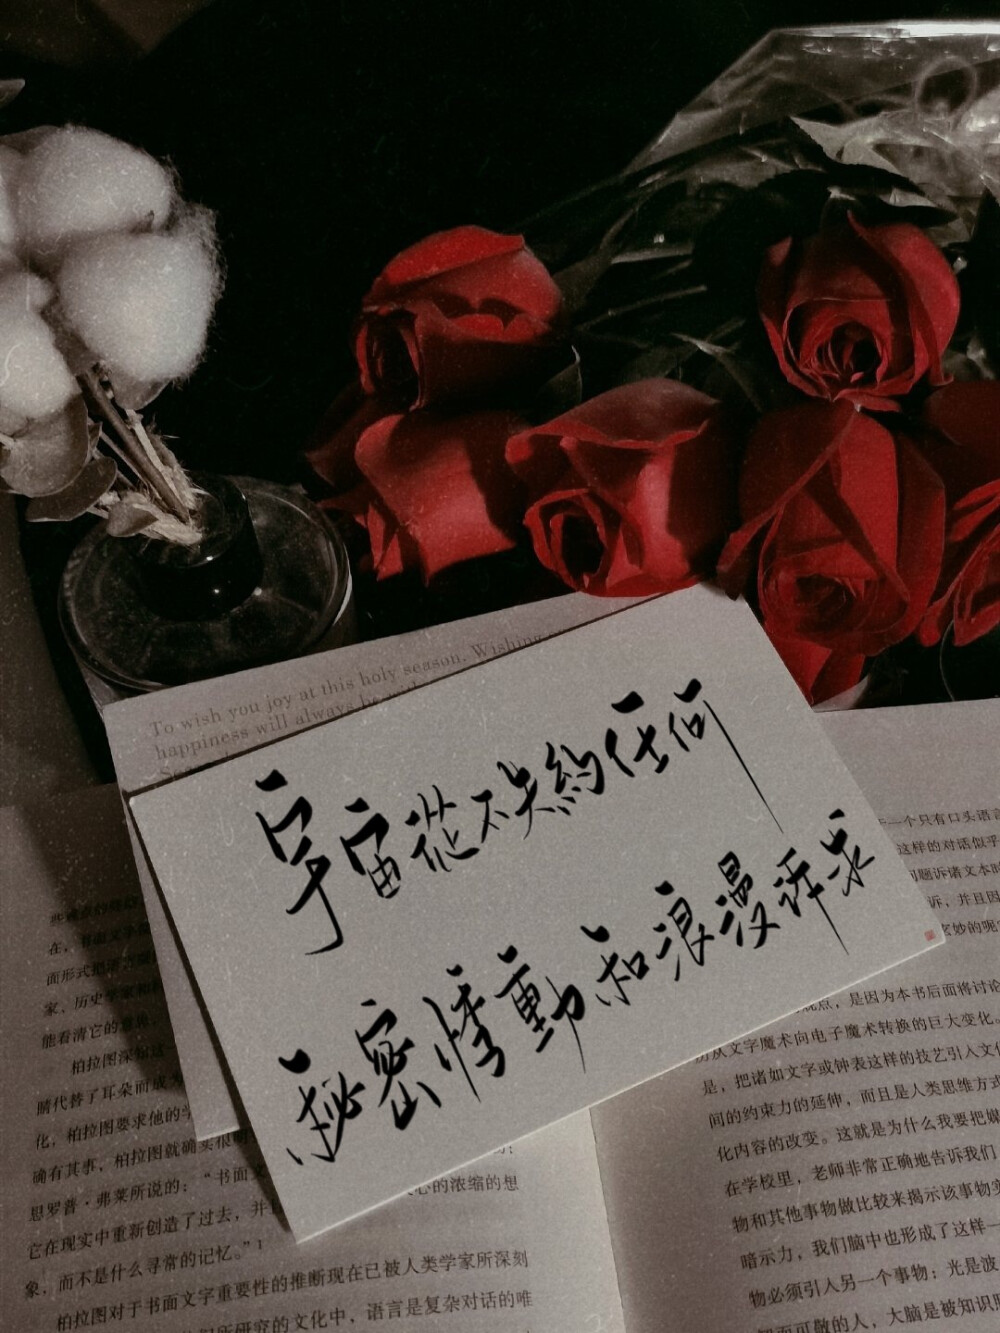 To wish you joy at this holy season. Wishing
happiness will always be
宇宙從不失約任何
秘密情動和浪漫訴求
在,书面文字
面形式把语言凝
家、历史学家和
能看清它的意义
柏拉图深知这一
睛代替了耳朵而成为
化,柏拉图要求他的学
确有其事,柏拉图就确实很明
思罗普·弗莱所说的:“书面文
它在现实中重新创造了过去,并且
心的浓缩的想
象,而不是什么寻常的记忆。”1
柏拉图对于书面文字重要性的推断现在已被人类学家所深刻
所研究的文化中,语言是复杂对话的唯
一个只有口头语言
这样的对话似乎
问题诉诸文本的
诉,并且因
玄妙的呢
观点,是因为本书后面将讨论
历从文字魔术向电子魔术转换的巨大变化。
是,把诸如文字或钟表这样的技艺引入文化
间的约束力的延伸,而且是人类思维方式
化内容的改变。这就是为什么我要把媒
在学校里,老师非常正确地告诉我们
物和其他事物做比较来揭示该事物实
暗示力,我们脑中也形成了这样一
物必须引入另一个事物:光是波
而可敬的人,大脑是被知识照